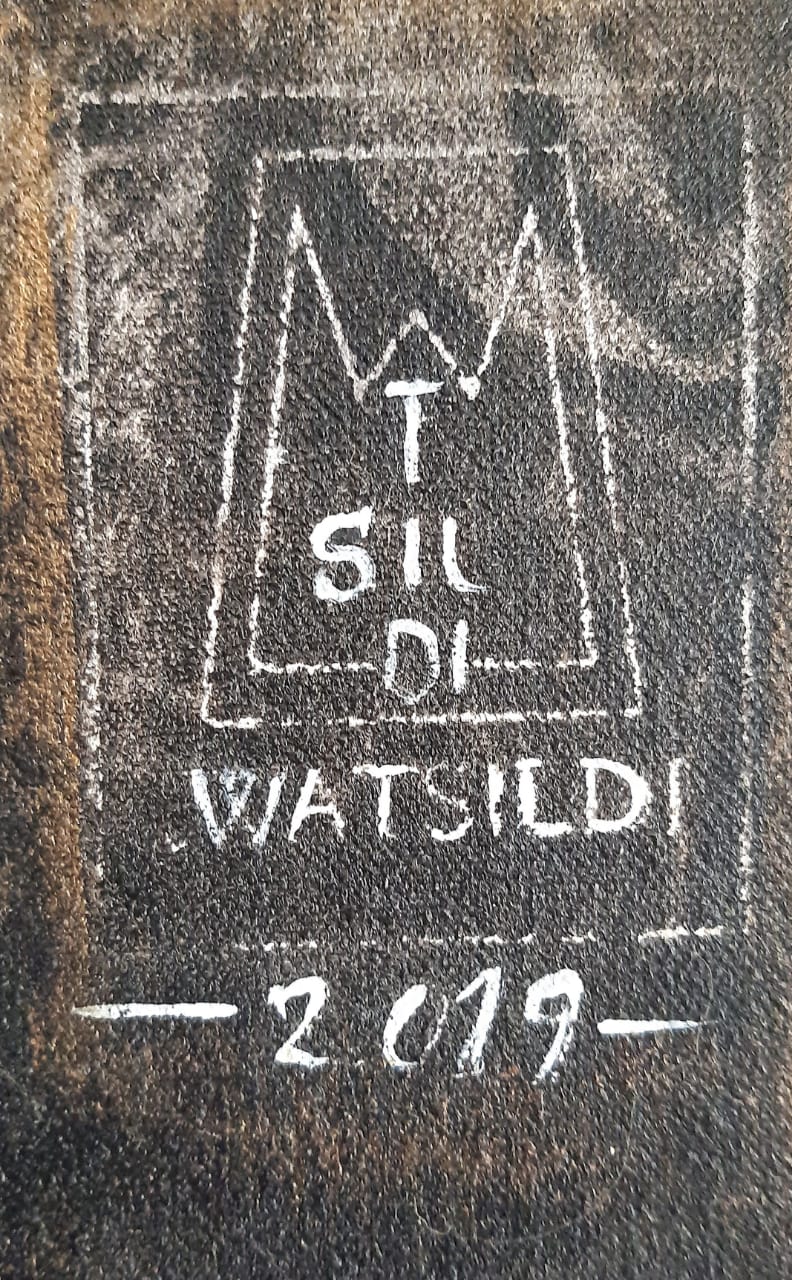 T
SIL
DI
WATSILDI
— 2019 —